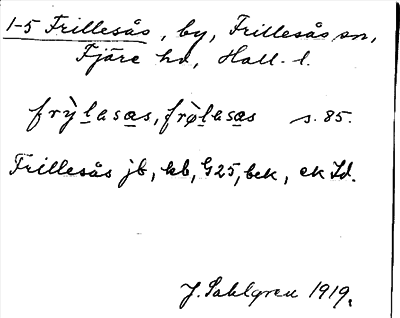 1-5 Frillesås, by, Frillesås sn,
Fjäre hd, Hall. l.
frỳlasas, frø̀lasas s. 85.
Frillesås jb, kb, G25, bek, ek Id.
J. Sahlgren 1919.